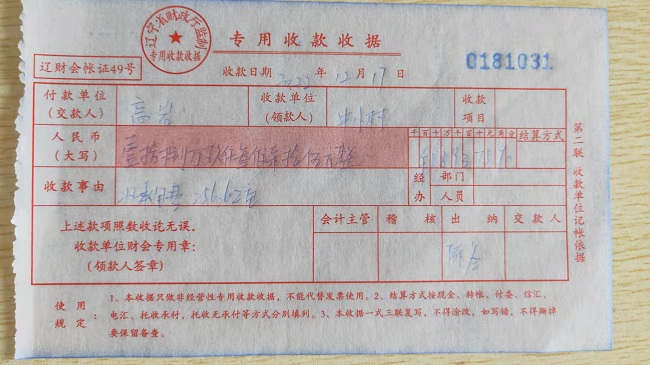 辽宁省财政厅监制
专用收款收据
专用收款收据
0181031
辽财会帐证49号
收款日期 2022年12月17日
付款单位
(交款人)
高岩
收款单位
(领款人)
收款
项目
人民币
(大写)
千百十万千百十元角分
结算方式
收款事由
经办
部门
人员
上述款项照数收讫无误。
收款单位财会专用章:
(领款人签章)
会计主管
稽核
出纳
交款人
第二联 收款单位记帐依据
使用规定:
1、本收据只做非经营性专用收款收据,不能代替发票使用。2、结算方式按现金、转帐、付委、信汇、
电汇、托收承付,托收无承付等方式分别填列。3、本收据一式三联复写,不得涂改,如写错,不得撕掉
要保留备查。